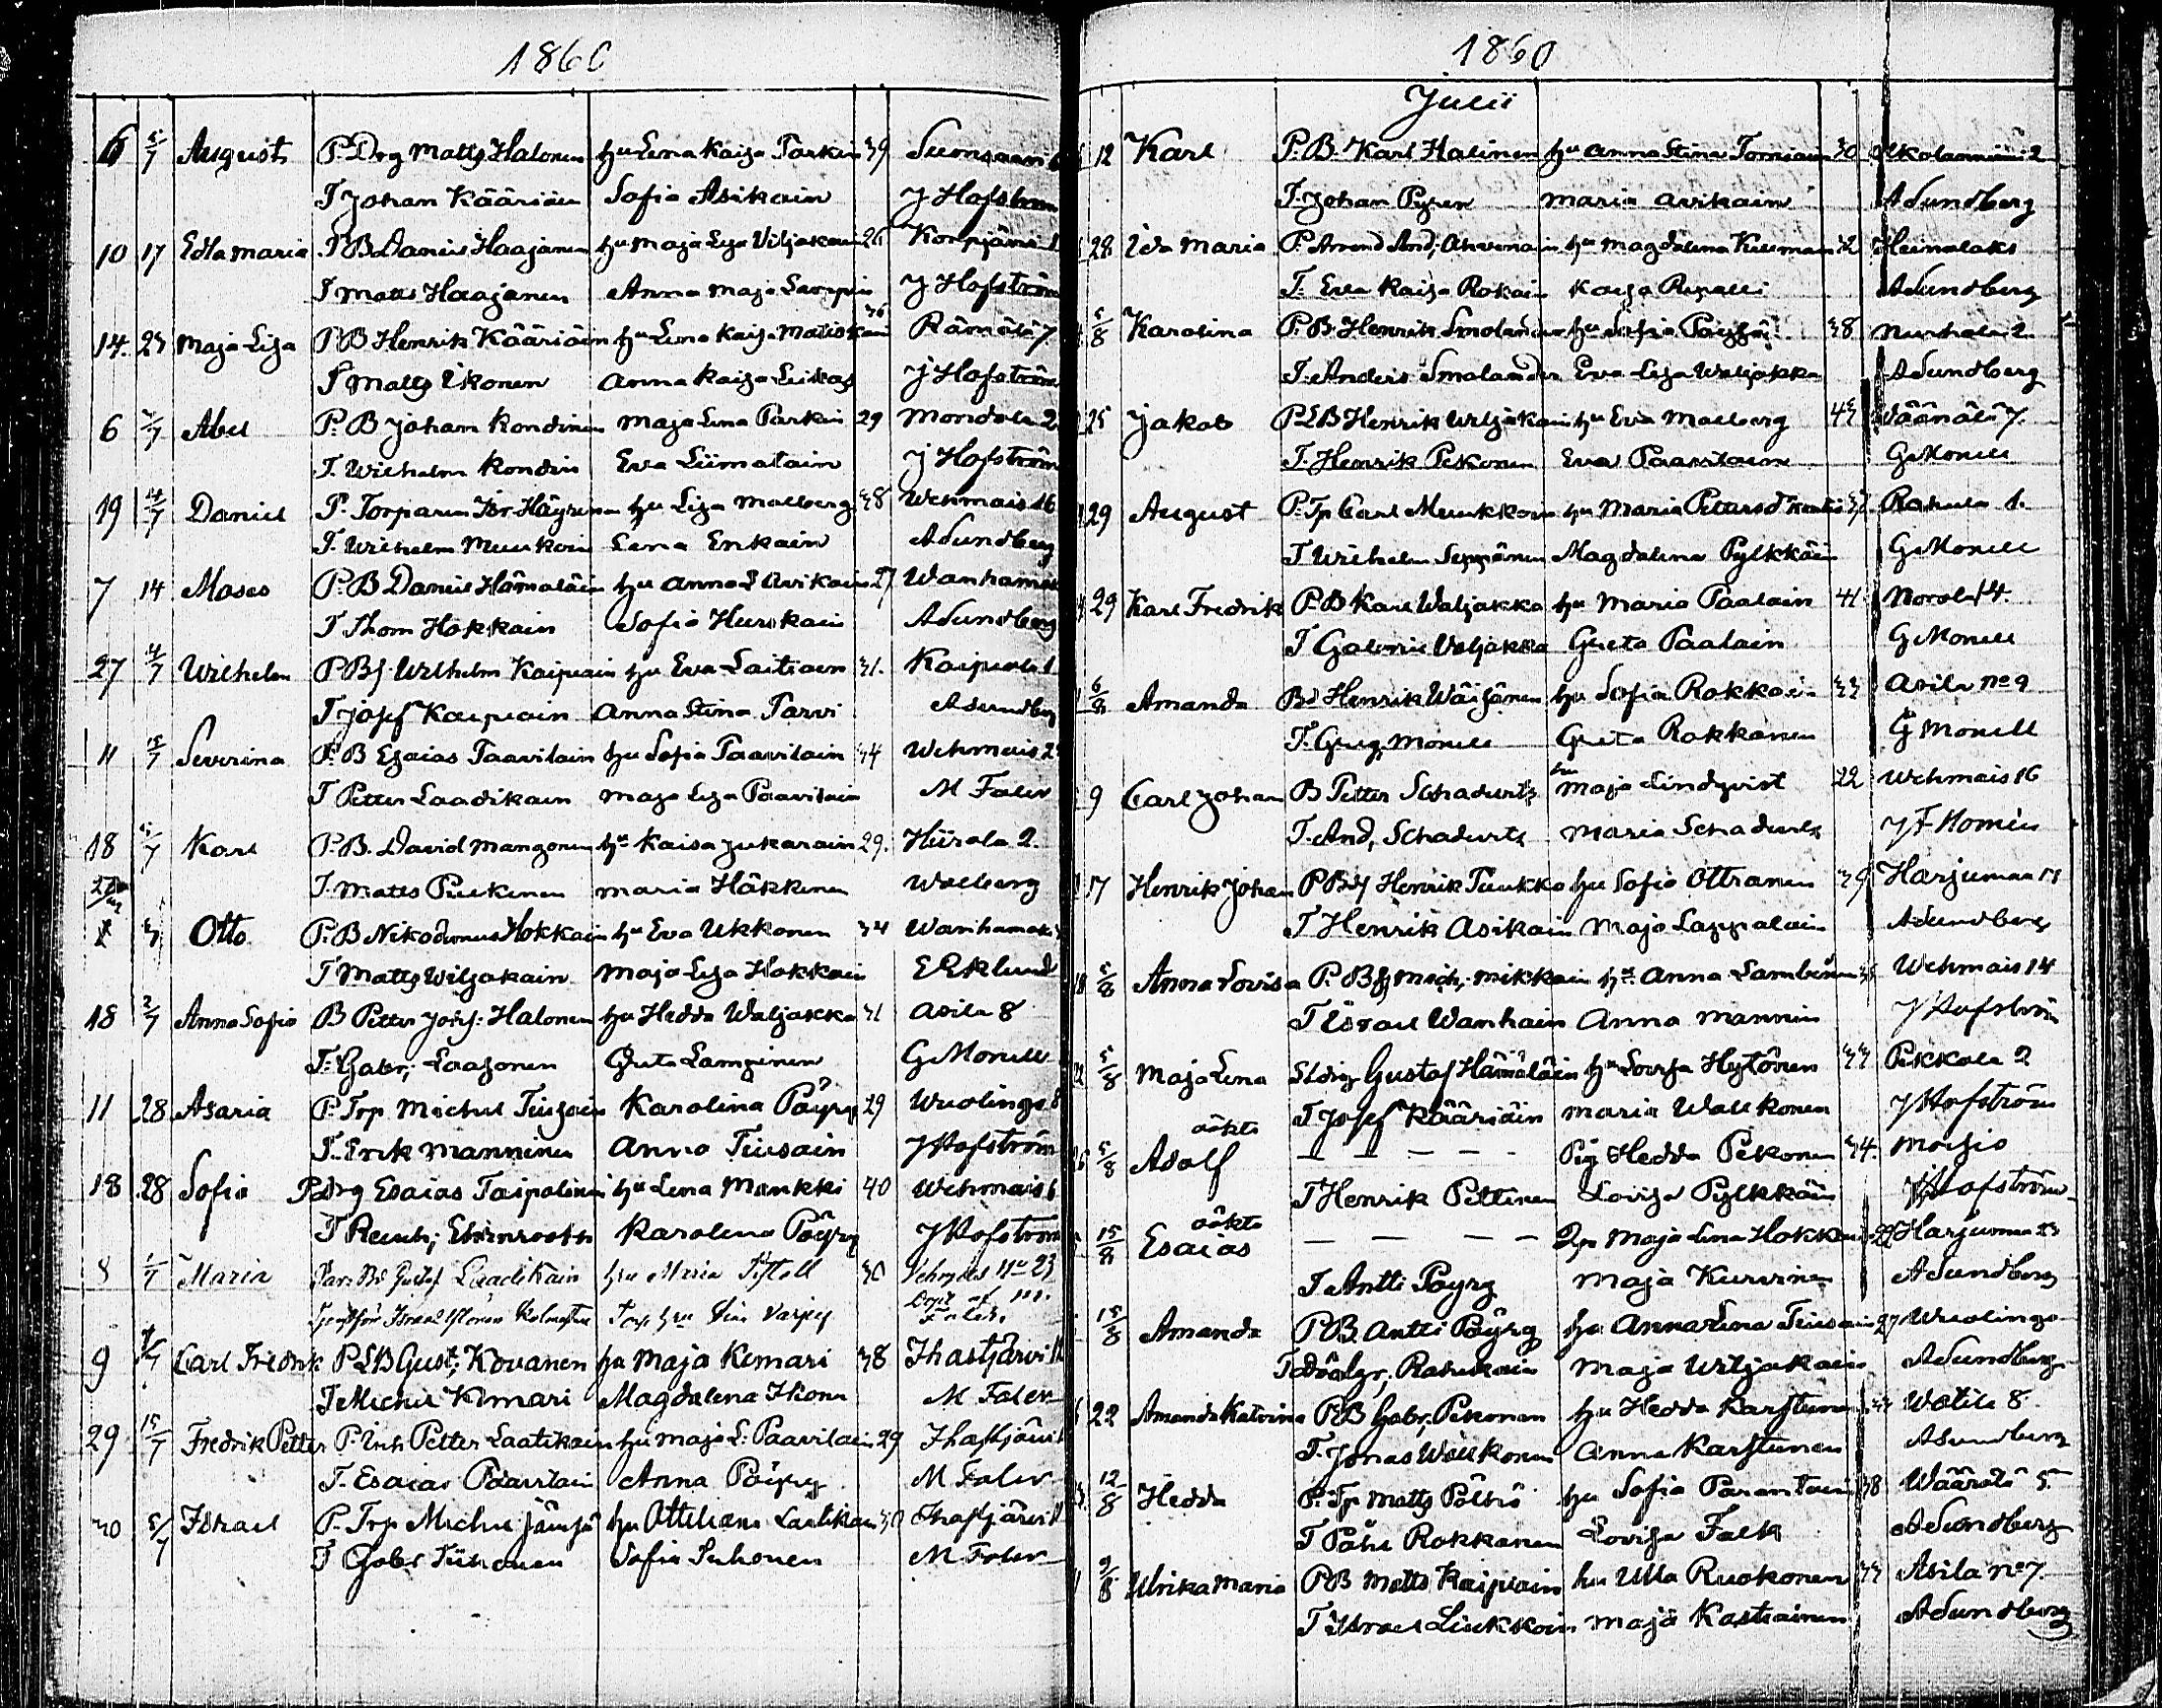 1860
6 5/7 August P. Drg Matts Halonen hu Lena Kaisa Parkin 39 Sumsaari 6
T Johan Kääriäin Sofia Asikain J Hofström
10 17 Edla Maria P B Daniel Haajanen hu Maja Lisa Viljakain 26 Konnjärvi 1
T Matts Haajanen Anna Maja J Hofström
14. 23 Maja Lisa P B Henrik Kääriäin hu Lena Kaisa Matiskain 36 Rämälä 7
T Matts Ikonen Anna Kaisa Leikas J Hofström
6 /7 Abel P. B Johan Kondinen Maja Lena Parkin 29 Mondola 2
T. Wilhelm Kondin Eva Liimatain J Hofström
19 /7 Daniel P. Torparen Isr Häyrinen hu Lisa Malberg 38 Wehmais 16
T. Wilhelm Muukoin Lena Enkain A Sundberg
7 14 Moses P. B Daniel Hämäläin hu Anna L Avikain 27 Wanhamäki
T Thom Hokkain Sofia Hurskain A Sundberg
27 4/7 Wilhelm P Bf. Wilhelm Kaipiain hu Eva Laitiain 31. Kaipiala 1
T Josef Kaipiain Anna Stina Parvi A Sundberg
11 15/7 Severina P. B Esaias Paavilain hu Sofia Paavilain 34 Wehmais 2
T Petter Laadikain Maja Lisa Paavilain M Falev
18 /7 Karl P. B. David Mangonen hu Kaisa Jukarain 29. Hiirola 2.
T. Matts Puikinen Maria Häkkinen Walberg
Otto P. B Nikodemus Hokkain hu Eva Ukkonen 34 Wanhamäki
T Matts Wiljakain Maja Lisa Hokkain E Eklund
18 2/7 Anna Sofia B Petter Josf: Halonen hu Hedda Waljakka 31 Asila 8
T. Gabr; Laasonen Greta Lampinen G Monell
11 28 Asaria P. Trp Michel Tiusain Karolina Pöyry 29 Wuolingo 8
T. Erik Manninen Anna Tiusain J Hofström
18 28 Sofia P. drg Esaias Taipalinen hu Lena Mankki 40 Wehmais 6
T Reinh; Ehrnrooth Karolina Pöyry J Hofström
8 1/7 Maria Gustaf Laadikain hu Maria Pistoll 30 No 23
Israel af M. Falev.
9 Carl Fredrik P L B Gust; Kovanen hu Maja Kemari 38 Ihastjärvi
T Michel Kimari Magdalena Ikonen M Falev
29 15/7 Fredrik Petter P. Inh Petter Laatikain hu Maja L: Paavilain 29 Ihastjärvi
T. Esaias Paavilain Anna Pöyry M Falev
30 5/7 Israel P. Trp Michel Jämsä hu Ottiliana Laatikain 30 Ihastjärvi
T Gabr Tiihonen Sofia Suhonen M Falev
1860
Julii
12 Karl P. B. Karl Halinen hu Anna Stina Torniain 30 Ukolanniemi 2
T. Johan Pyren Maria Avikain A Sundberg
28 Ida Maria P. Arrend And; Ahvenain hu Magdalena Kuuman 32 Heimalaks
T. Eva Kaisa Rokain Kaisa A Sundberg
5/8 Karolina P. B. Henrik Smolander hu Sofia 38 Nurhola 2.
T. Anders Smalander Eva Lisa Waljakka A Sundberg
25 Jakob P L B Henrik Wiljakain hu Eva Malberg 43 Väänälä 7.
T. Henrik Pekonen Eva Paavilain G Monell
29 August P. Tp Carl Muukkoin hu Maria Pettersd 32 Rahula 1.
T Wilhelm Seppänen Magdalena Pylkkäin G Monell
29 Karl Fredrik P. B Karl Waljakka hu Maria Paalain 41 Norola 4.
T Gabriel Valjakka Greta Paalain G Monell
6/8 Amanda Bd Henrik Wäisänen hu Sofia Rokkain 33 Asila no 9
T. Greg; Monell Greta Rokkanen G Monell
9 Carl Johan B Petter Schadevitz hu Maja Lindqvist 22 Wehmais 16
T. And, Schadevitz Maria Schadevitz J F Homén
17 Henrik Johan P Bdf Henrik Tuukka hu Sofia Ottranen 39 Harjumaa
T Henrik Asikain Maja Lappalain A Sundberg
5/8 Anna Lovisa P. Bf Mich; Mikkain hu Anna Lambinen 35 Wehmais 14
T Israel Wanhain Anna Mannin J Hofström
5/8 Maja Lena Sldrg Gustaf Hämäläin hu Lovisa Hytönen 33 Pekkola 2
T Josef Kääriäin Maria Walkonen J Hofström
oäkta
5/8 Adolf — — — — — Pig Hedda Pekonen 34. Moisio
T Henrik Peltinen Lovisa Pylkkäin J Hofström
oäkta
15/8 Esaias — — — — Maja Lena Hokkain 22 Harjumaa 23
T Antti Pöyry Maja Kurvinen A Sundberg
15/8 Amanda P B. Antti Pöyry hu Anna Lena Tiusain 27 Wuolingo
T Rahikain Maja Wiljakain A Sundberg
22 Amanda Katrina P B Gabr; Pekonen hu Hedda Karstunen 33 Watila 8
T. Jonas Walkonen Anna Karstunen A Sundberg
12/8 Hedda P. Tp Matts Pöllö hu Sofia Parantain 38 Wäärälä 5.
T Påhl Rokkanen Lovisa Falk A Sundberg
9/8 Ulrika Maria P B Matts Kaipiain hu Ulla Ruokonen 33 Asila no 7.
T Israel Liukkoin Maja Kastiainen A Sundberg